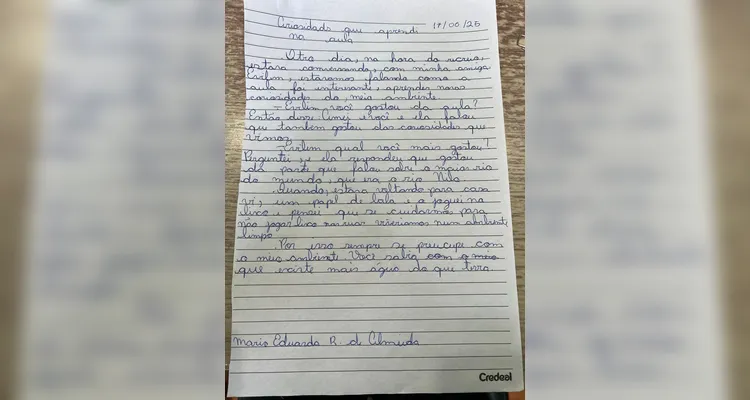 Curiosidade que aprendi 17/06/25
na aula
Otro dia, na hora do recreio,
estava conversando, com minha amiga
Evilem, estavamos falando como a
aula foi interesante, aprender novas
curiosidades do, meio ambiente.
-Evilem você gostou da aula?
Então disse: Amei e você e ela falou
que também gostou das curiosidades que
vimos.
-Evilem qual você mais gostou?
Perguntei, e ela respondeu que gostou
da parte que falou sobre o maior rio
do mundo, que era o rio Nilo.
Quando, estava voltando para casa
vi, um papel de bala e o joguei no
lixo e pensei que se cuidarmos para
não jogar lixo nas ruas viveriamos num ambiente
limpo
Por isso sempre se preucupe com
o meio ambiente. Você sabia com o meio
que existe mais água do que terra.
Maria Eduarda R. de Almeida
Credeal